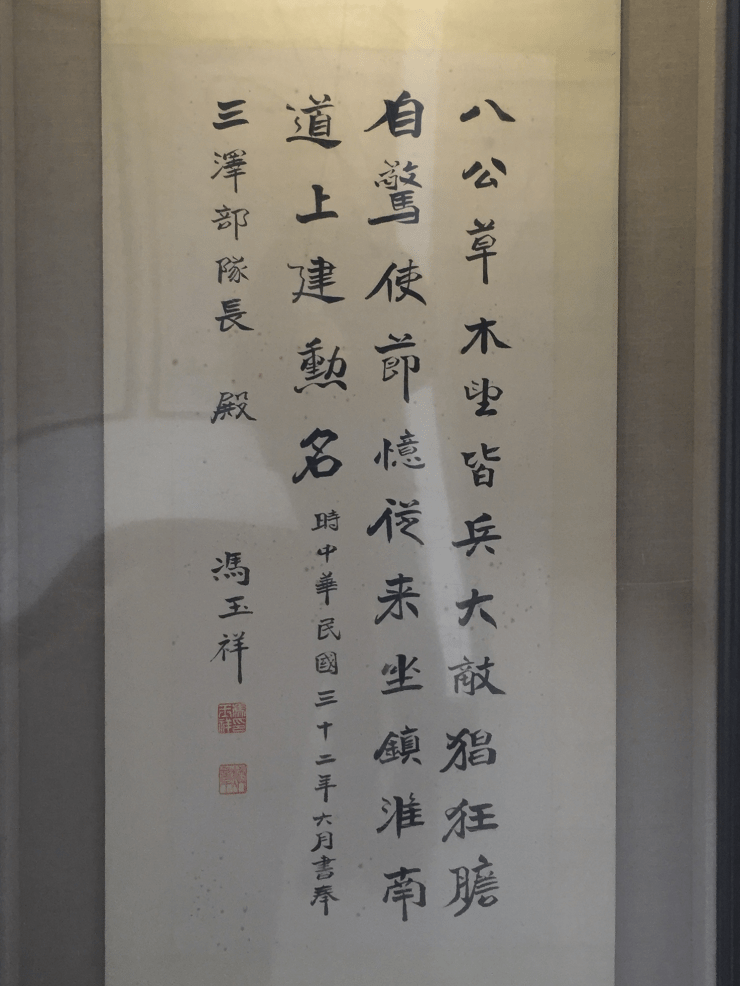 八公草木望皆兵大敵猖狂膽
自驚使節憶從来坐鎮淮南
道上建勳名時中華民國三十二年六月書奉
三澤部隊長 殿 馮玉祥